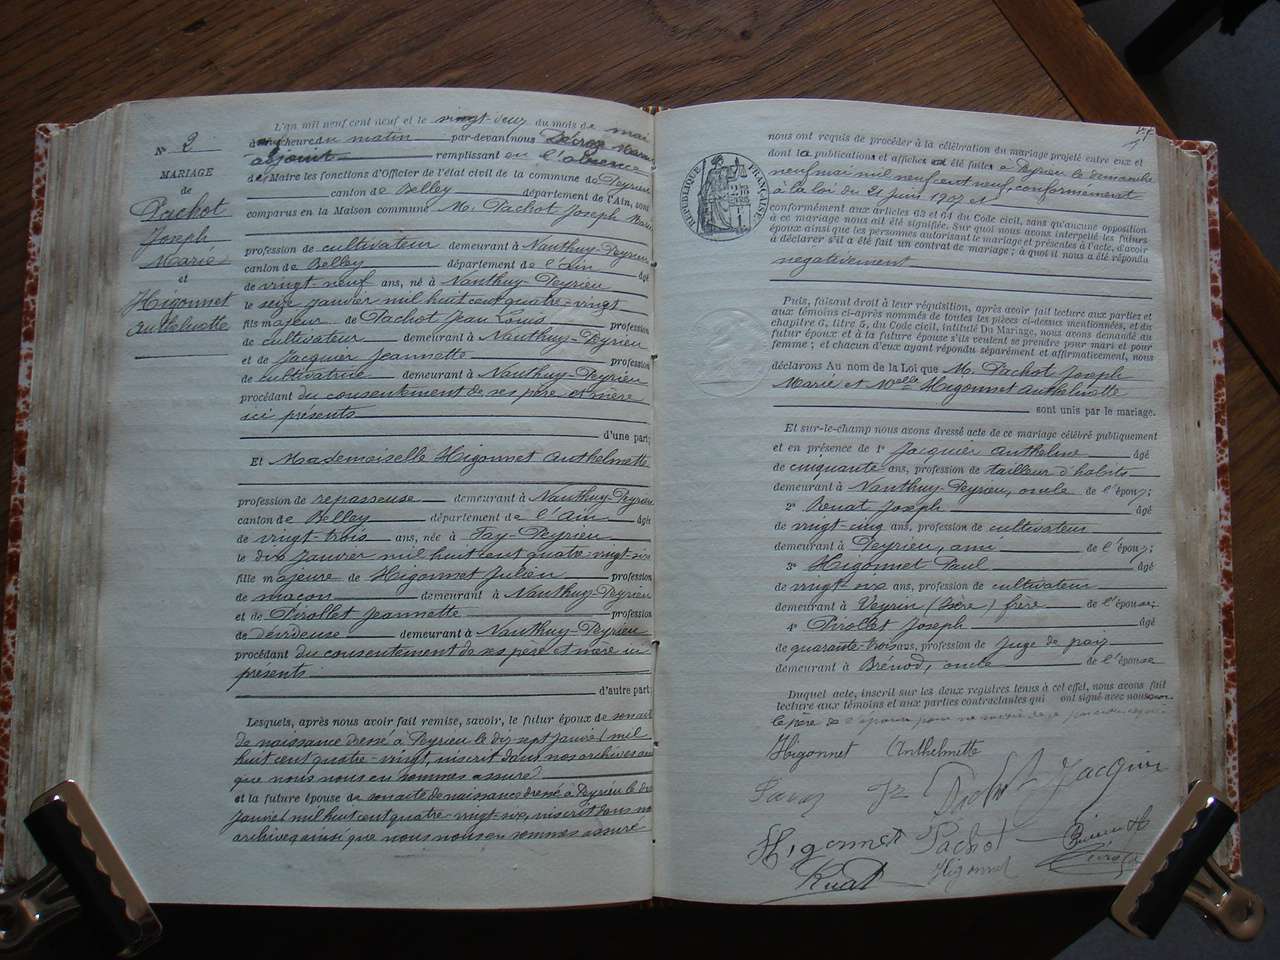 L'an mil neuf cent neuf et le vingt-deux du mois de mai
heure du matin par-devant nous
adjoint remplissant en l'absence
de Maire les fonctions d'Officier de l'état civil de la commune de Peyrieu
canton de Belley département de l'Ain, sont
comparus en la Maison commune M. Pachot Joseph Marie
N° 2
MARIAGE
de
Pachot
Joseph
Marie
et
Higonnet
Anthelmette
profession de cultivateur demeurant à Nanthuy-Peyrieu
canton de Belley département de l'Ain âgé
de vingt-neuf ans, né à Nanthuy-Peyrieu
le seize janvier mil huit cent quatre-vingt
fils majeur de Pachot Jean Louis profession
de cultivateur demeurant à Nanthuy-Peyrieu
et de Jacquier Jeannette profession
de cultivatrice demeurant à Nanthuy-Peyrieu
procédant du consentement de ses père et mère
ici présents
d'une part;
Et Mademoiselle Higonnet Anthelmette
profession de repasseuse demeurant à Nanthuy-Peyrieu
canton de Belley département de l'Ain âgée
de vingt-trois ans, née à Fay-Peyrieu
le dix janvier mil huit cent quatre-vingt-six
fille majeure de Higonnet Julien profession
de maçon demeurant à Nanthuy-Peyrieu
et de Pirollet Jeannette profession
de dévideuse demeurant à Nanthuy-Peyrieu
procédant du consentement de ses père et mère ici
présents
d'autre part
Lesquels, après nous avoir fait remise, savoir, le futur époux de son acte
de naissance dressé à Peyrieu le dix sept janvier mil
huit cent quatre-vingt, inscrit dans nos archives ainsi
que nous nous en sommes assuré
et la future épouse de son acte de naissance dressé à Peyrieu le dix
janvier mil huit cent quatre-vingt-six, inscrit dans nos
archives ainsi que nous nous en sommes assuré
nous ont requis de procéder à la célébration du mariage projeté entre eux et
dont la publication et affiches a été faite à Peyrieu le dimanche
neuf mai mil neuf cent neuf, conformément
à la loi du 21 juin 1907 et
RÉPUBLIQUE FRANÇAISE
conformément aux articles 63 et 64 du Code civil, sans qu'aucune opposition
à ce mariage nous ait été signifiée. Sur quoi nous avons interpellé les futurs
époux ainsi que les personnes autorisant le mariage et présentes à l'acte, d'avoir
à déclarer s'il a été fait un contrat de mariage; à quoi il nous a été répondu
négativement
Puis, faisant droit à leur réquisition, après avoir fait lecture aux parties et
aux témoins ci-après nommés de toutes les pièces ci-dessus mentionnées, et du
chapitre 6, titre 5, du Code civil, intitulé Du Mariage, nous avons demandé au
futur époux et à la future épouse s'ils veulent se prendre pour mari et pour
femme; et chacun d'eux ayant répondu séparément et affirmativement, nous
déclarons Au nom de la Loi que M. Pachot Joseph
Marie et Melle Higonnet Anthelmette
sont unis par le mariage.
Et sur-le-champ nous avons dressé acte de ce mariage célébré publiquement
et en présence de 1° Jacquier Anthelme âgé
de cinquante ans, profession de tailleur d'habits
demeurant à Nanthuy-Peyrieu, oncle de l'époux;
2° Joseph âgé
de vingt-cinq ans, profession de cultivateur
demeurant à Peyrieu, ami de l'époux;
3° Higonnet Paul âgé
de vingt-six ans, profession de cultivateur
demeurant à Veyrin (Isère) frère de l'épouse;
4° Pirollet Joseph âgé
de quarante-trois ans, profession de Juge de paix
demeurant à Brénod, oncle de l'épouse
Duquel acte, inscrit sur les deux registres tenus à cet effet, nous avons fait
lecture aux témoins et aux parties contractantes qui ont signé avec nous
Higonnet Anthelmette
Pachot Jacquier
Higonnet Pachot
Ruat Higonnet